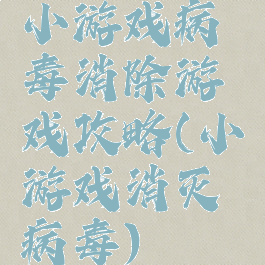 小游戏病
毒消除游
戏攻略(小
游戏消灭
病毒)